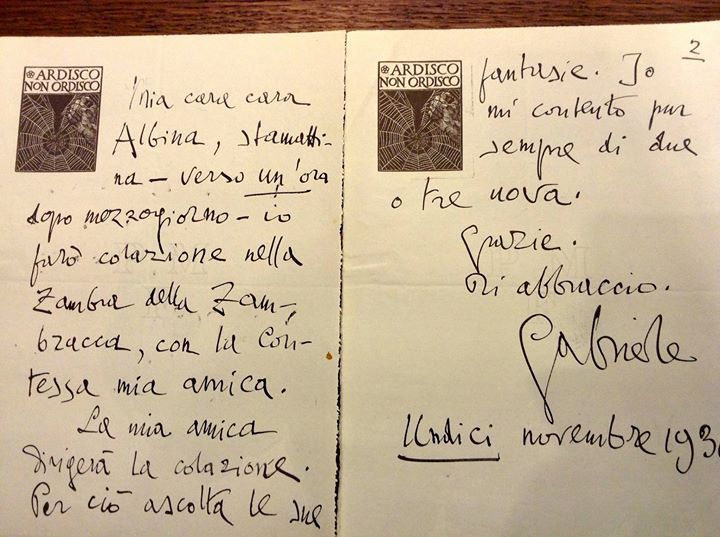 ARDISCO
NON ORDISCO
Mia cara cara
Albina, stamatti-
na – verso un'ora
dopo mezzogiorno – io
farò colazione nella
Zambra della Zam-
bracca, con la Con-
tessa mia amica.
La mia amica
dirigerà la colazione.
Per ciò ascolta le sue
2
ARDISCO
NON ORDISCO
fantasie. Io
mi contento pur
sempre di due
o tre nova.
Grazie.
Ti abbraccio.
Gabriele
Undici novembre